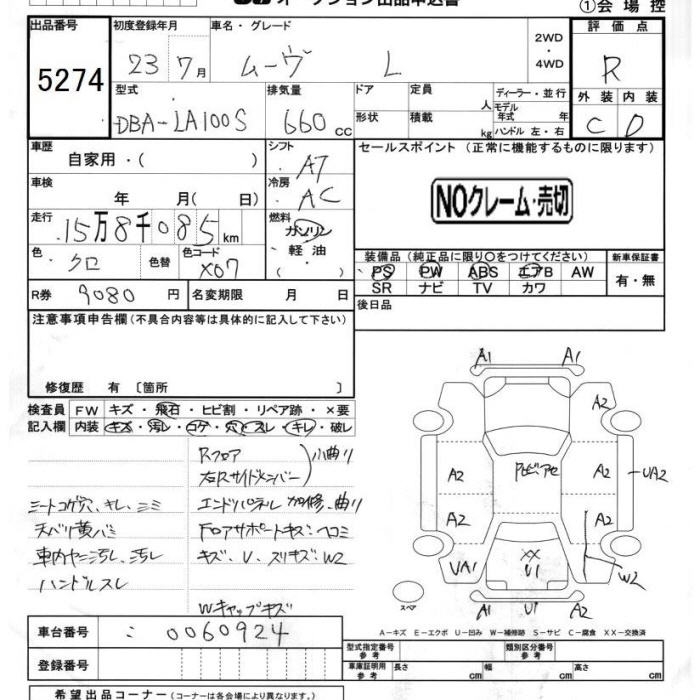 オークション出品申込書 ①会場控
出品番号 初度登録年月 車名・グレード 2WD ・ 4WD 評価点
5274 23 7月 ムーヴ L R
型式 排気量 ドア 定員 人 ディーラー・並行 外装 内装
DBA-LA100S 660 cc 形状 積載 kg モデル年式 年 ハンドル 左・右 C D
車歴 自家用・( ) シフト AT セールスポイント (正常に機能するものに限ります)
車検 年 月( 日) 冷房 AC NOクレーム・売切
走行 15万8千085km 燃料 ガソリン 軽油
色 クロ 色替 色コード X07 装備品 (純正品に限り○をつけてください) 新車保証書
PS PW ABS エアB AW 有・無
SR ナビ TV カワ
R券 9080円 名変期限 月 日 後日品
注意事項申告欄(不具合内容等は具体的に記入して下さい)
修復歴 有 〔箇所 〕
検査員 FW キズ・飛石・ヒビ割・リペア跡・×要
記入欄 内装 キズ・汚レ・コゲ・穴・スレ・キレ・破レ
Rフロア 小曲り
右Rサイドメンバー
シートコゲ穴、キレ、シミ エンドパネル 加修、曲り
天バリ黄バミ Fロアサポートキズ・ヘコミ
車内ヤニ汚レ、汚レ キズ、U、スリキズ、W2
ハンドルスレ
Wキャップキズ
A1 A1
A2
A2 A2 UA2
A2 A2
UA1 XX U1 W2
スペア A1 U1 A1
A-キズ E-エクボ U-凹み W-補修跡 S-サビ C-腐食 XX-交換済
車台番号 : 0060924
型式指定番号 参考 類別区分番号 参考
登録番号 車庫証明用 参考 長さ cm 幅 cm 高さ cm
希望出品コーナー (コーナーは各会場により異なります。)